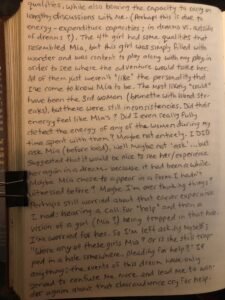 qualities, while also bearing the capacity to carry on
lengthy discussions with me. (Perhaps this is due to
energy-expenditure capacities; in dreams vs. outside
of dreams?). The 1st girl had some qualities that
resembled Mia, but this girl was simply filled with
wonder and was content to play along with my play in
order to see where the adventure would take her.
All of them just weren't "like" the personality that
I've come to know Mia to be. The most likely "could"
have been the 3rd woman (brunette with blond str-
eaks), but there were still inconsistencies. Did their
energy feel like Mia's? Did I even really fully
detect the energy of any of the women during my
time spent with them? Maybe not entirely. I DID
ask Mia (before bed), well maybe not "ask"... but
suggested that it would be nice to see her/experience
her again in a dream because it had been awhile.
Maybe Mia chose to appear in a form I hadn't
witnessed before? Maybe I'm over thinking things?
Perhaps still worried about that experience
I had: hearing a call for "help" and then a
vision of a girl (Mia?) being trapped in that hole.
I'm worried for her. So I'm left asking myself:
"Were any of these girls Mia? Or is she still trapp-
ed in a hole somewhere, pleading for help?" If
anything, the events of this dream have only
served to confuse me more and lead me to won-
der again about that clairaudience cry for help.